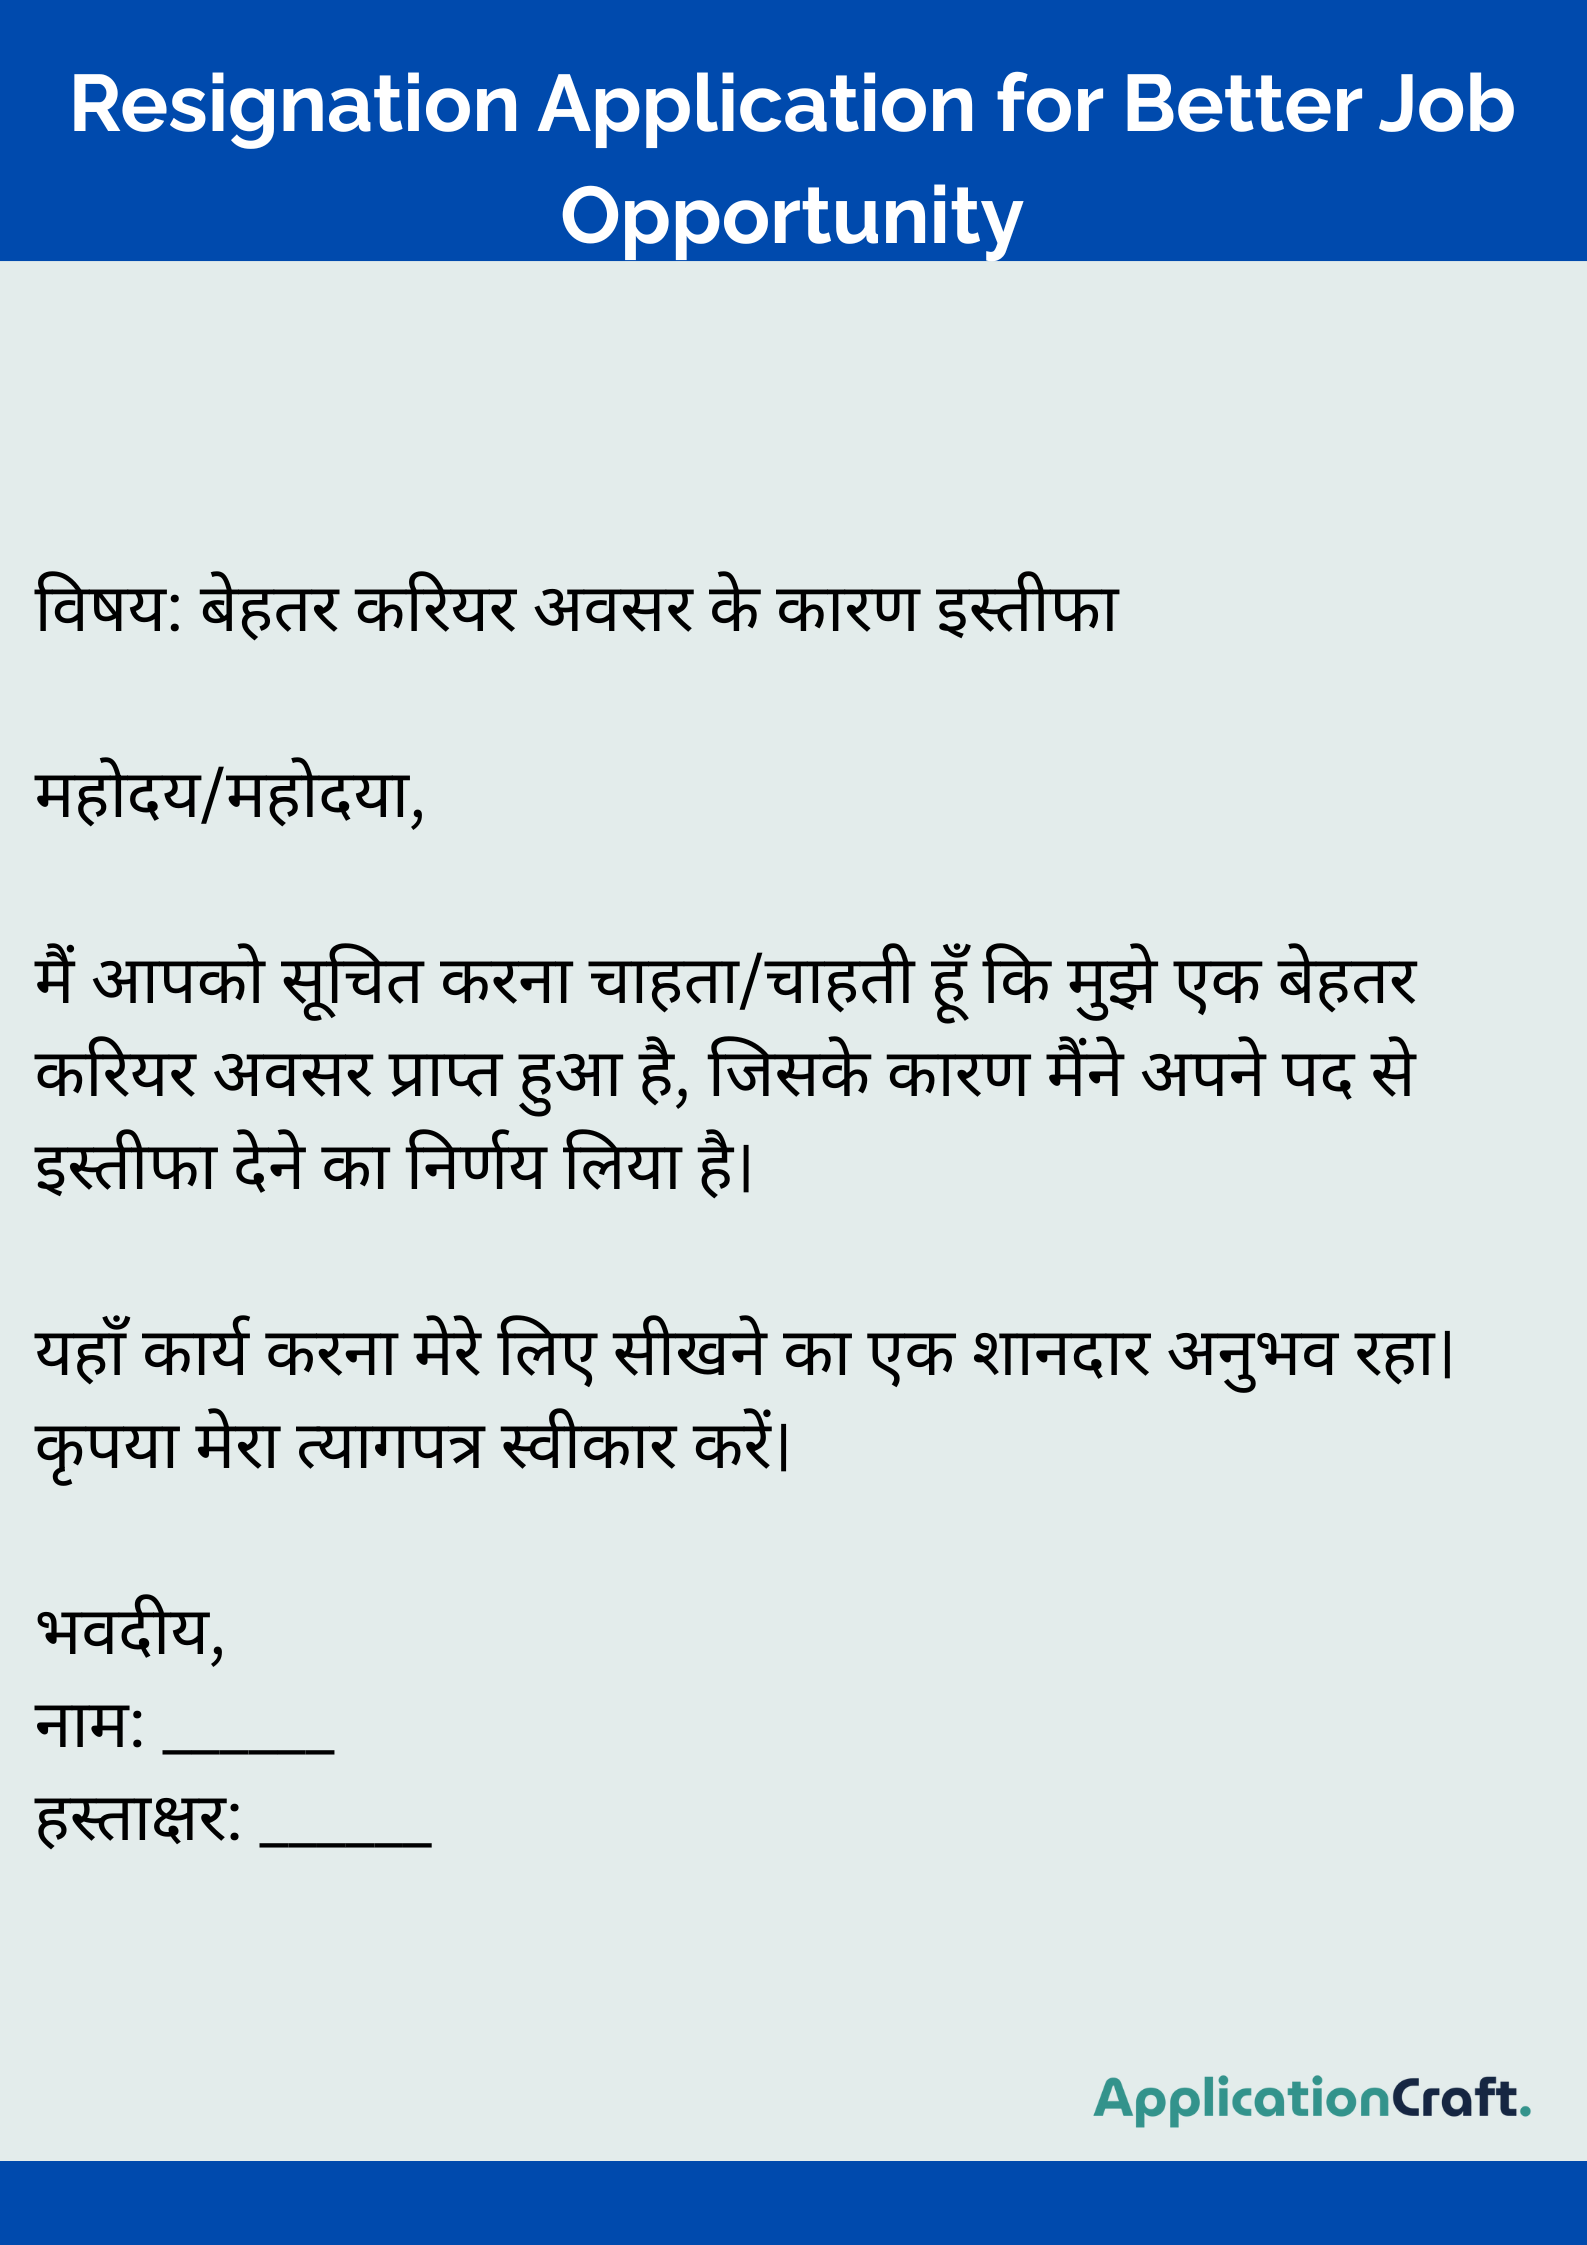 Resignation Application for Better Job
Opportunity
विषय: बेहतर करियर अवसर के कारण इस्तीफा
महोदय/महोदया,
मैं आपको सूचित करना चाहता/चाहती हूँ कि मुझे एक बेहतर
करियर अवसर प्राप्त हुआ है, जिसके कारण मैंने अपने पद से
इस्तीफा देने का निर्णय लिया है।
यहाँ कार्य करना मेरे लिए सीखने का एक शानदार अनुभव रहा।
कृपया मेरा त्यागपत्र स्वीकार करें।
भवदीय,
नाम: ______
हस्ताक्षर: ______
ApplicationCraft.